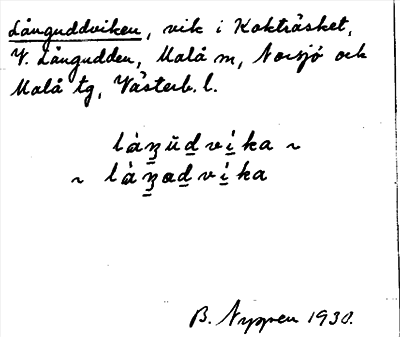 Långuddviken, vik i Kokträsket,
V. Långudden, Malå m, Norsjö och
Malå tg, Västerb. l.
làn̠ŭd̠ vi̠ka ~
~ làn̠ad̠ vi̠ka
B. Nyppen 1930.